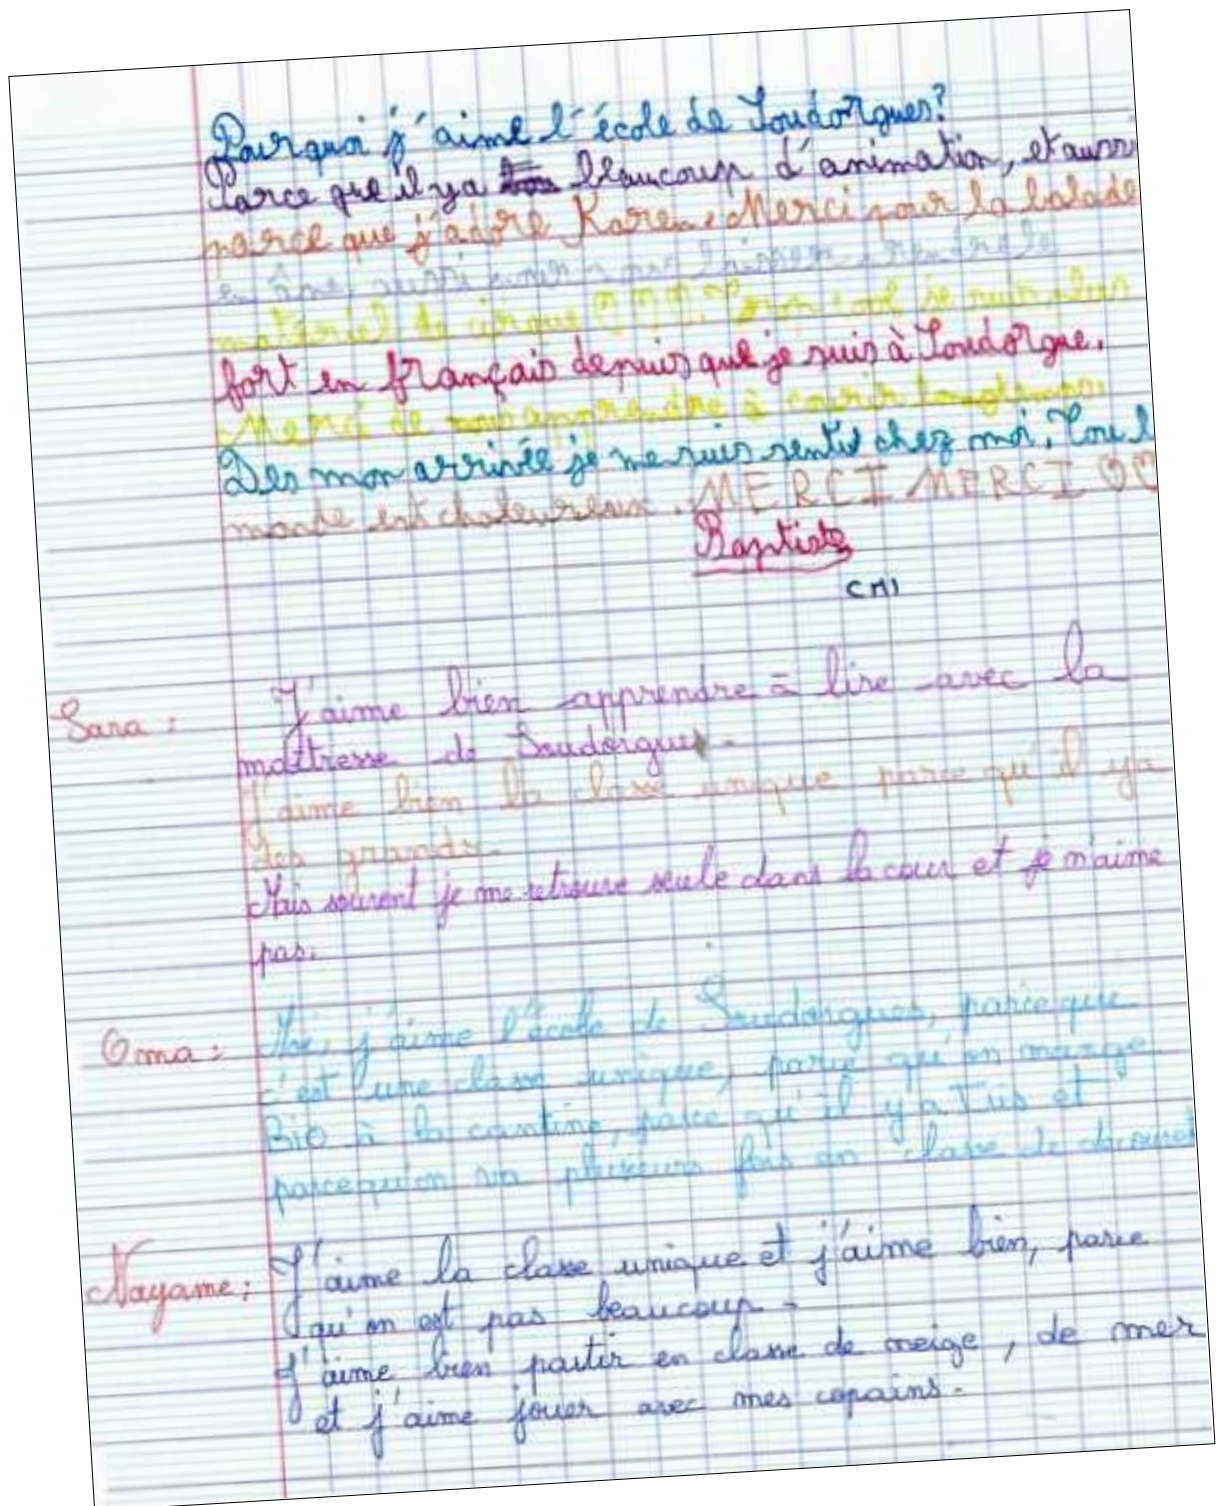 Pourquoi j'aime l'école de Soudorgues?
Parce que il y a beaucoup d'animation, et aussi
parce que j'adore Karen. Merci pour la balade
en âne, aussi pour nous laisser prendre le
matériel de cirque ♡♡♡♡. Trop cool je suis plus
fort en français depuis que je suis à Soudorgue.
Merci de nous apprendre à courir longtemps.
Des mon arrivée je me suis sentit chez moi. Tou l
monde est chaleureux. MERCI MERCI ♡♡
Baptiste
CM1
Sara : J'aime bien apprendre à lire avec la
maîtresse de Soudorgues.
J'aime bien la classe unique parce qu'il y a
des grands.
Mais souvent je me retrouve seule dans la cour et je n'aime
pas.
Oma : Moi, j'aime l'école de Soudorgues, parce que
c'est une classe unique, parce qu'on mange
BIO à la cantine, parce qu'il y a Titis et
parce qu'on va plusieurs fois en classe de découvert
Nayame : J'aime la classe unique et j'aime bien, parce
qu'on est pas beaucoup.
J'aime bien partir en classe de neige, de mer
et j'aime jouer avec mes copains.